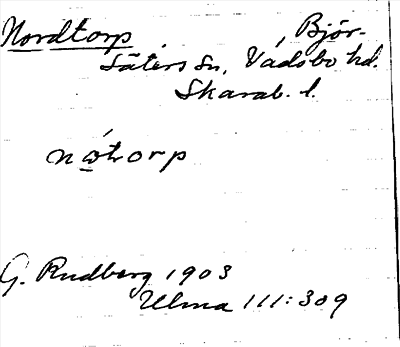 Nordtorp , Björ-
säters sn, Vadsbo hd.
Skarab. l.
nɷ́torp
G. Rudberg 1903
Ulma 111:309